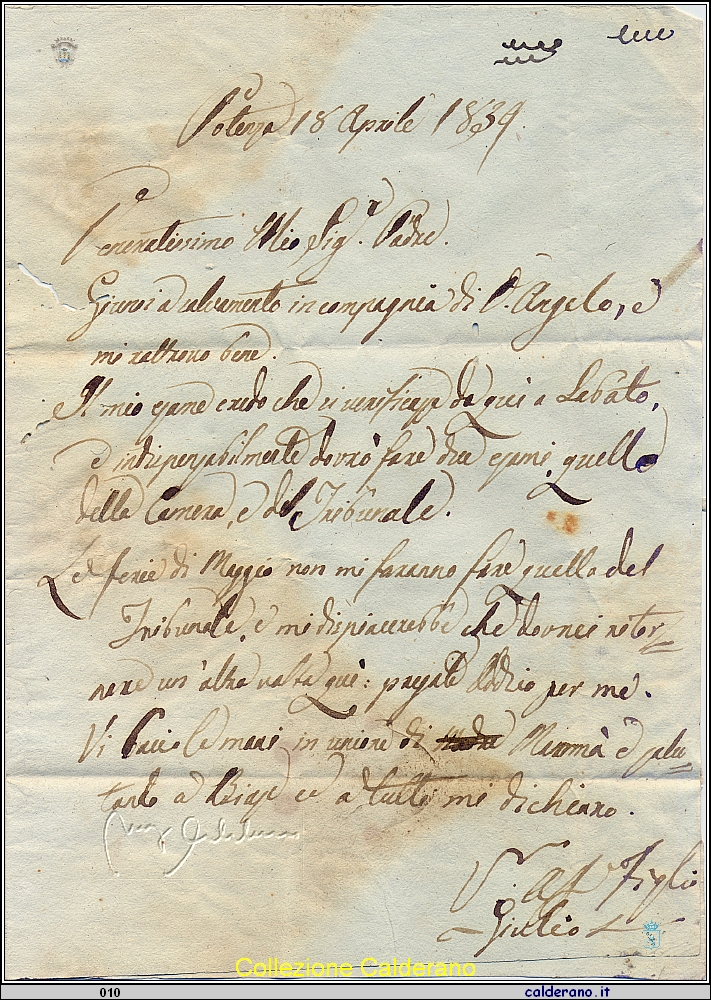 Potenza 18 Aprile 1839.
Veneratissimo Mio Sig.r Padre.
Giunsi a salvamento in compagnia di D. Angelo, e
mi ritrovo bene.
Il mio esame credo che si verifica da quì a Sabato,
e indispensabilmente dovrò fare due esami, quello
della Camera, e del Tribunale.
Le ferie di Maggio non mi faranno fare quello del
Tribunale, e mi dispiacerebbe che dovrei ritor=
nare un'altra volta quì: pregate Iddio per me.
Vi bacio le mani in unione di Mammà e salu=
tando a Biase ed a tutti mi dichiaro.
V. Aff. Figlio
Giulio
Collezione Calderano
010
calderano.it